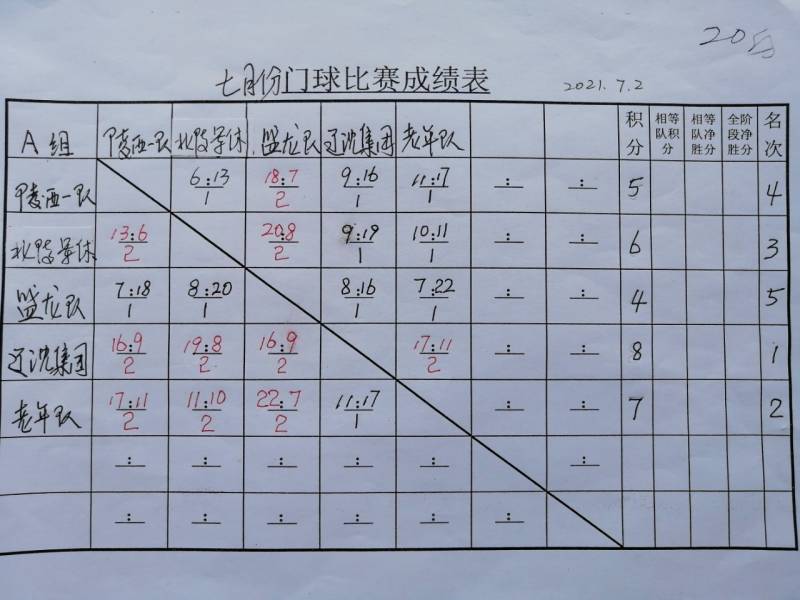 20分
七月份门球比赛成绩表 2021.7.2
A 组 陵西一队 盟龙队 辽沈集团 老年队 积分 相等队积分 相等队净胜分 全阶段净胜分 名次
陵西一队 6:13/1 18:7/2 9:16/1 11:17/1 : : 5 4
13:6/2 20:8/2 9:19/1 10:11/1 : : 6 3
盟龙队 7:18/1 8:20/1 8:16/1 7:22/1 : : 4 5
辽沈集团 16:9/2 19:8/2 16:9/2 17:11/2 : : 8 1
老年队 17:11/2 11:10/2 22:7/2 11:17/1 : : 7 2
: : : : : :
: : : : : :